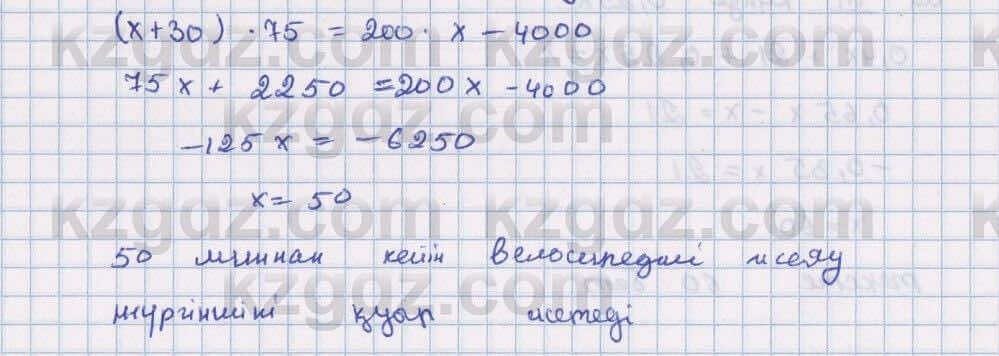 (x+30) · 75 = 200 · x - 4000
75x + 2250 = 200x - 4000
-125x = -6250
x = 50
50 миннан кейін велосипедші жаяу
жүргіншіні қуап жетеді
kzgdz.com
kzgdz.com
kzgdz.com
kzgdz.com